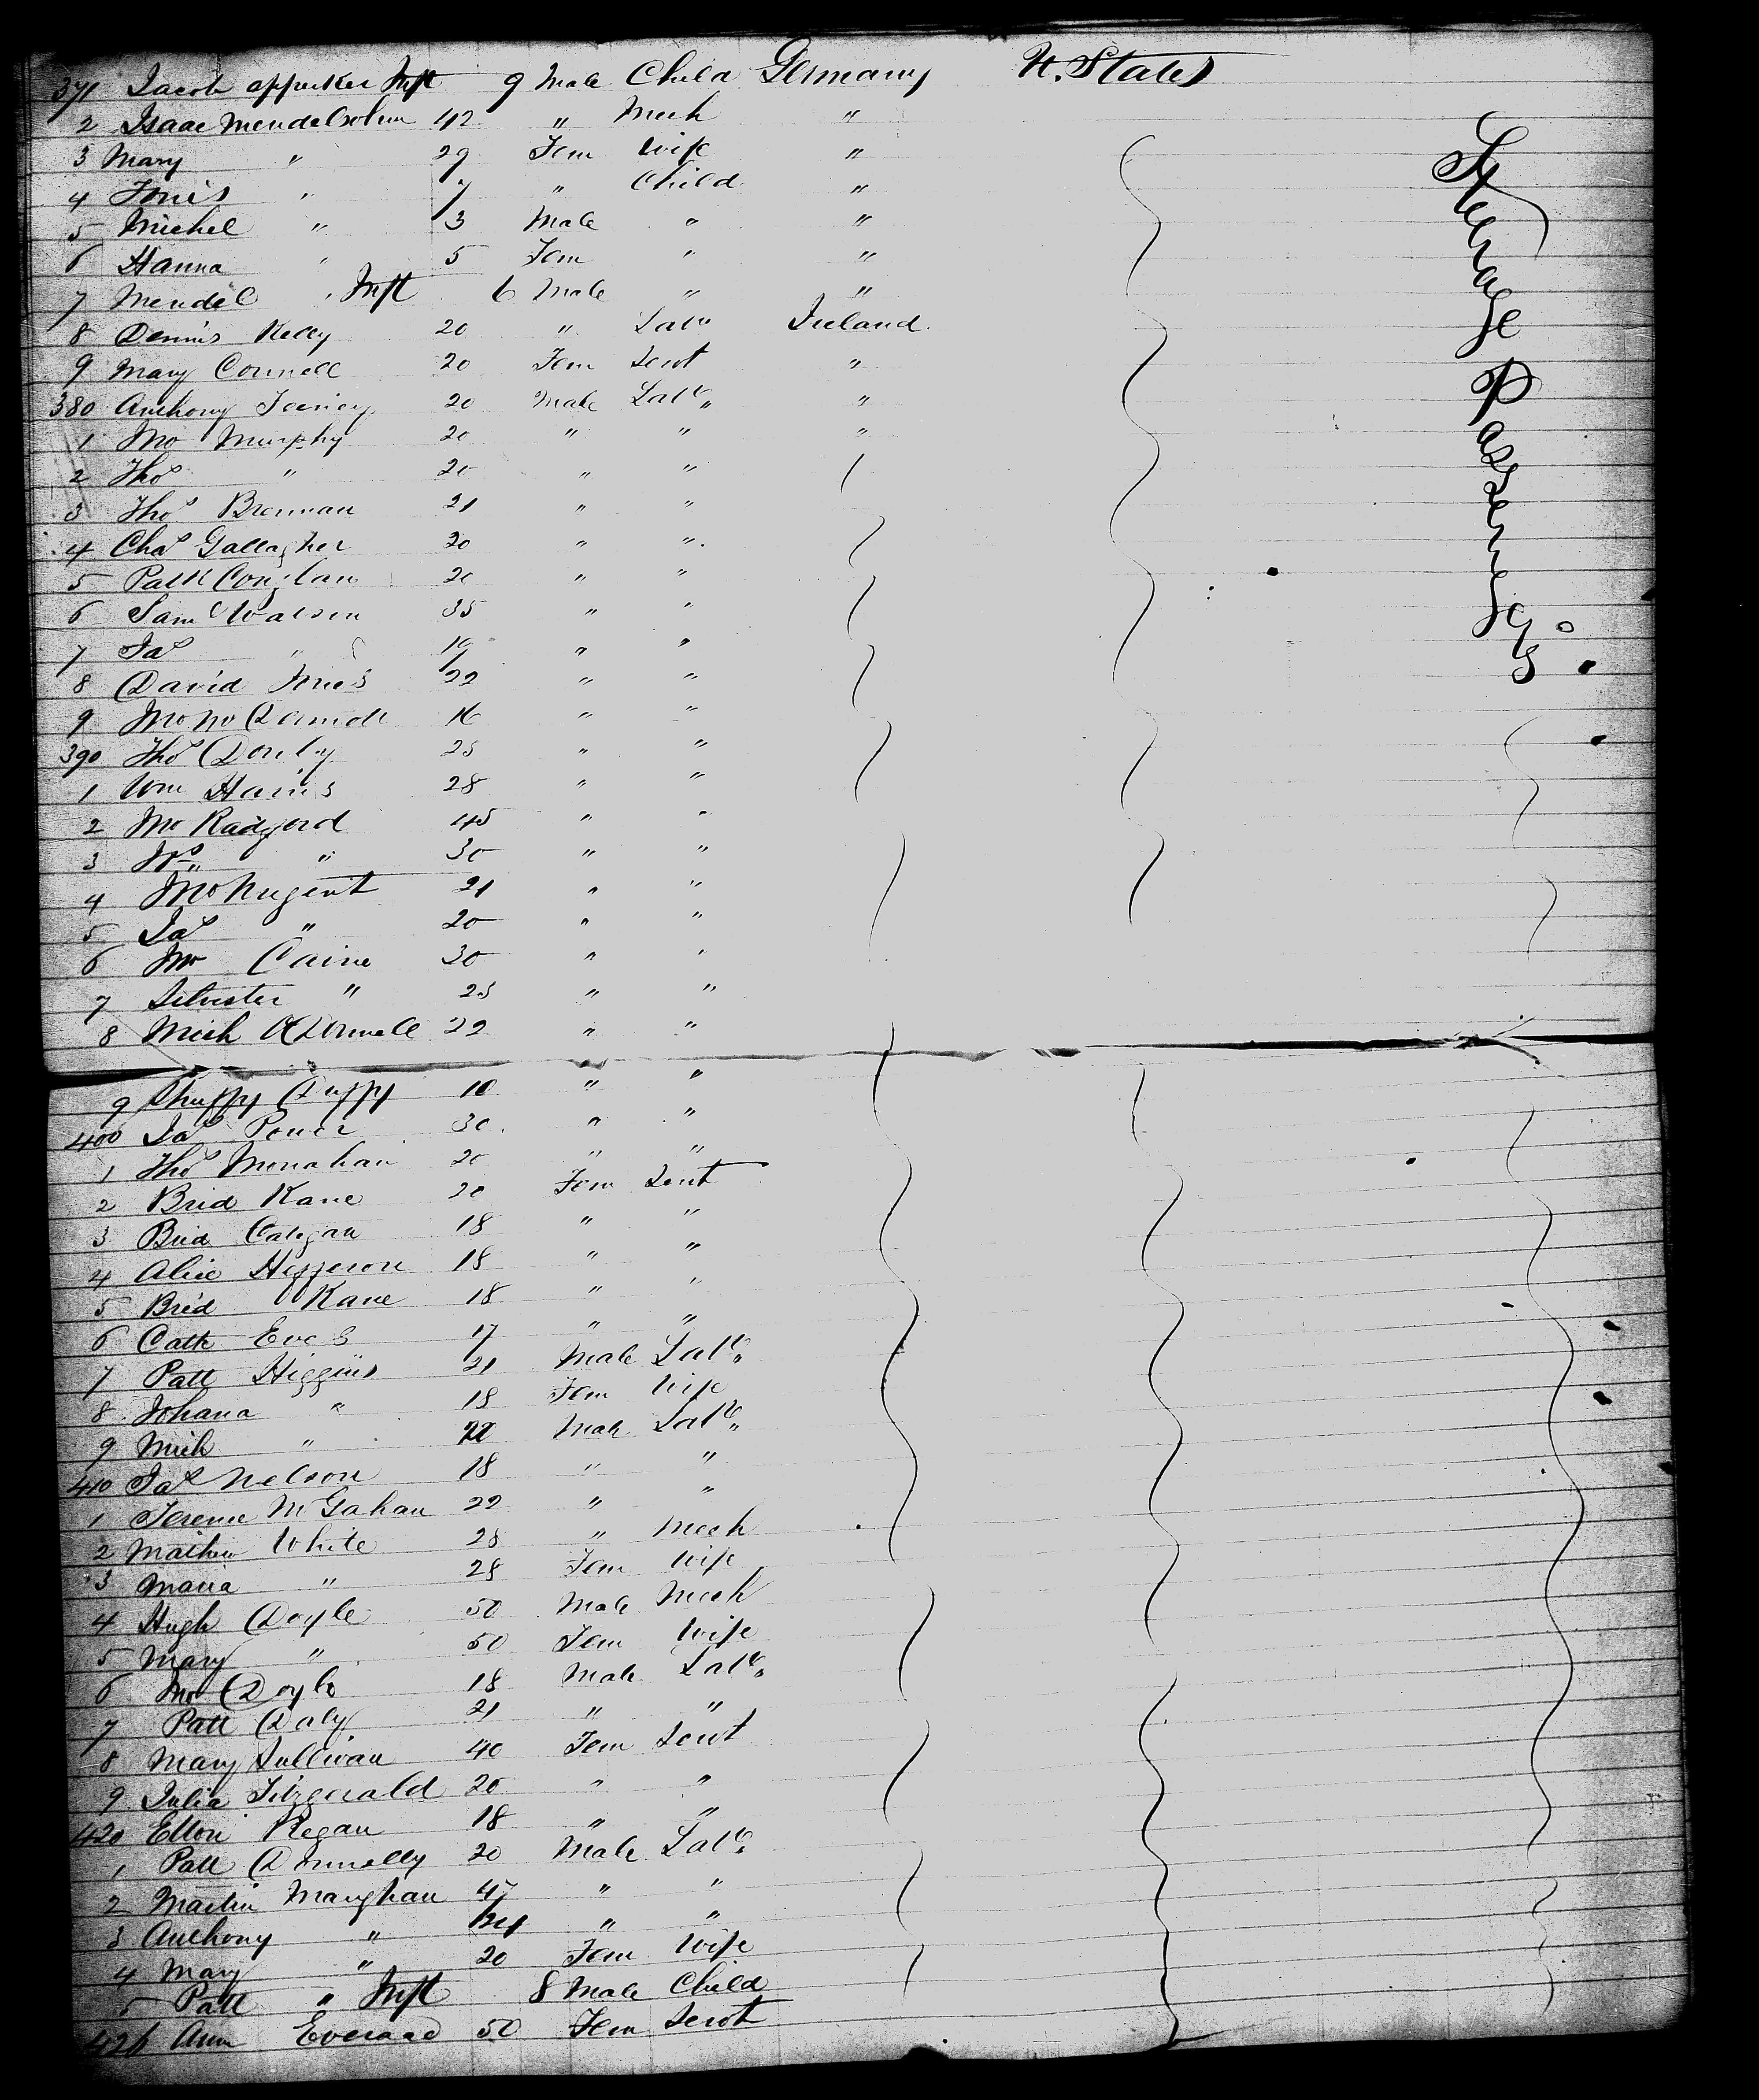 371 Jacob Inft 9 Male Child Germany U. States
2 Isaac Mendelsohn 42 " Mech "
3 Mary " 29 Fem Wife "
4 " 7 " Child "
5 Michel " 3 Male " "
6 Hanna " 5 Fem " "
7 Mendel " Inft 6 Male " "
8 Dennis Kelly 20 " Labr Ireland.
9 Mary Connell 20 Fem Servt "
380 Anthony Feeney 20 Male Labr "
1 Jno Murphy 20 " " "
2 Thos " 20 " "
3 Thos Brennan 21 " "
4 Chas Gallagher 20 " "
5 Patk Conglan 20 " "
6 Saml Watson 35 " "
7 Jas " 19 " "
8 David Jones 22 " "
9 Jno McDermott 16 " "
390 Thos 25 " "
1 Wm Hains 28 " "
2 Jno Radford 45 " "
3 " 30 " "
4 Jno Nugent 21 " "
5 Jas " 20 " "
6 Jno Caine 30 " "
7 Silvester " 25 " "
8 Mich ODonnell 22 " "
9 Duffy 10 " "
400 Jas Power 30 " "
1 Thos Monahan 20 " "
2 Brid Kane 20 Fem Servt
3 Brid 18 " "
4 Alice Hepperon 18 " "
5 Brid Kane 18 " "
6 Cath Eves 17 " "
7 Patt Higgins 21 Male Labr
8 Johana " 18 Fem Wife
9 Mich " 22 Male Labr
410 Jas Nelson 18 " "
1 Terence McGahan 22 " "
2 Mathew White 28 " Mech
3 Maria " 28 Fem Wife
4 Hugh Doyle 50 Male Mech
5 Mary " 50 Fem Wife
6 Jno Doyle 18 Male Labr
7 Patt Daly 21 " "
8 Mary Sullivan 40 Fem Servt
9 Julia Fitzgerald 20 " "
420 Ellen Regan 18 " "
1 Patt Donnelly 20 Male Labr
2 Martin Manghan 47 " "
3 Anthony " 24 " "
4 Mary " 20 Fem Wife
5 Patt " Inft 8 Male Child
426 Ann Everard 50 Fem Servt
Steerage Passengers